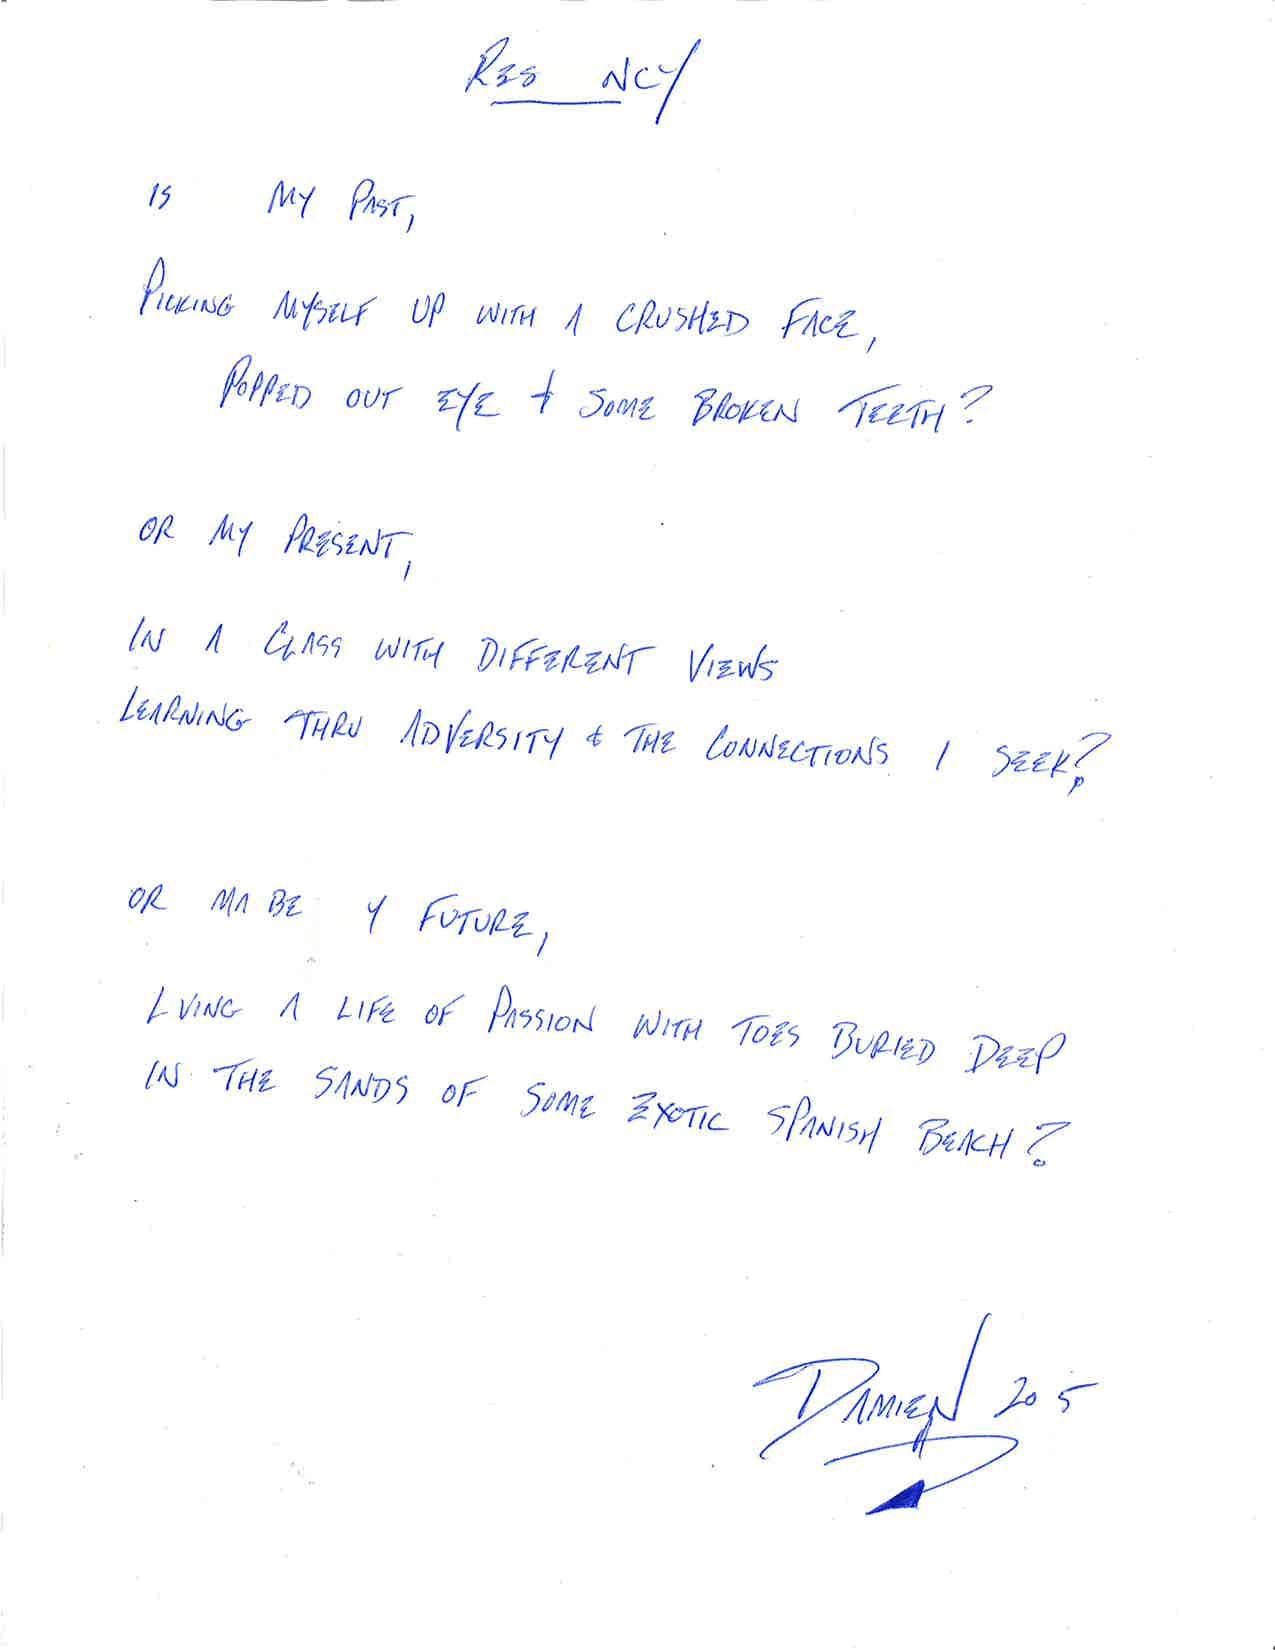 RES NCY
IS MY PAST,
PICKING MYSELF UP WITH A CRUSHED FACE,
POPPED OUT EYE & SOME BROKEN TEETH?
OR MY PRESENT,
IN A CLASS WITH DIFFERENT VIEWS
LEARNING THRU ADVERSITY & THE CONNECTIONS I SEEK?
OR MA BE Y FUTURE,
L VING A LIFE OF PASSION WITH TOES BURIED DEEP
IN THE SANDS OF SOME EXOTIC SPANISH BEACH?
DAMIEN 20 5